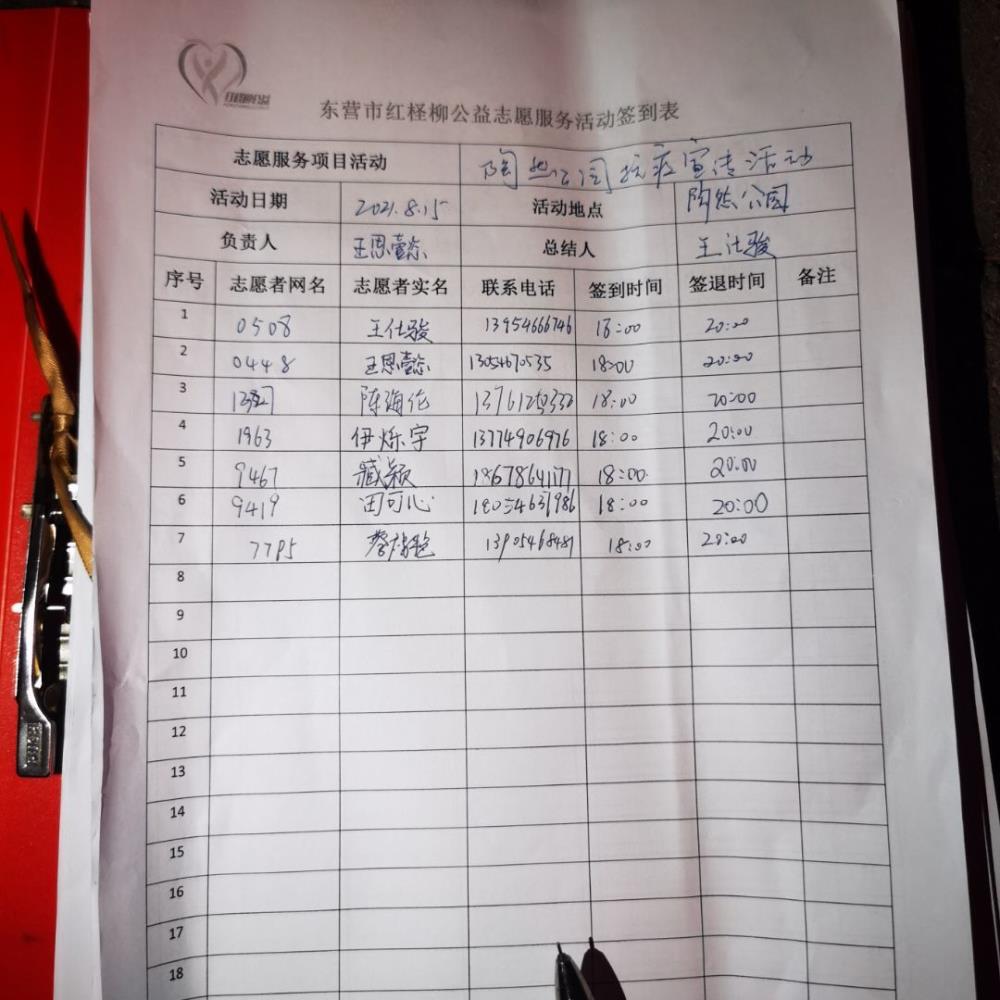 东营市红柽柳公益志愿服务活动签到表
志愿服务项目活动 陶然公园抗疫宣传活动
活动日期 2021.8.15 活动地点 陶然公园
负责人 王思懿 总结人 王仕骏
序号 志愿者网名 志愿者实名 联系电话 签到时间 签退时间 备注
1 0508 王仕骏 13954666746 18:00 20:00
2 0448 王思懿 13054670535 18:00 20:00
3 陈海伦 18:00 20:00
4 1963 伊烁宇 13774906976 18:00 20:00
5 9467 臧颖 18678641177 18:00 20:00
6 9419 田可心 18054631986 18:00 20:00
7 7795 13905468481 18:00 20:00
8
9
10
11
12
13
14
15
16
17
18